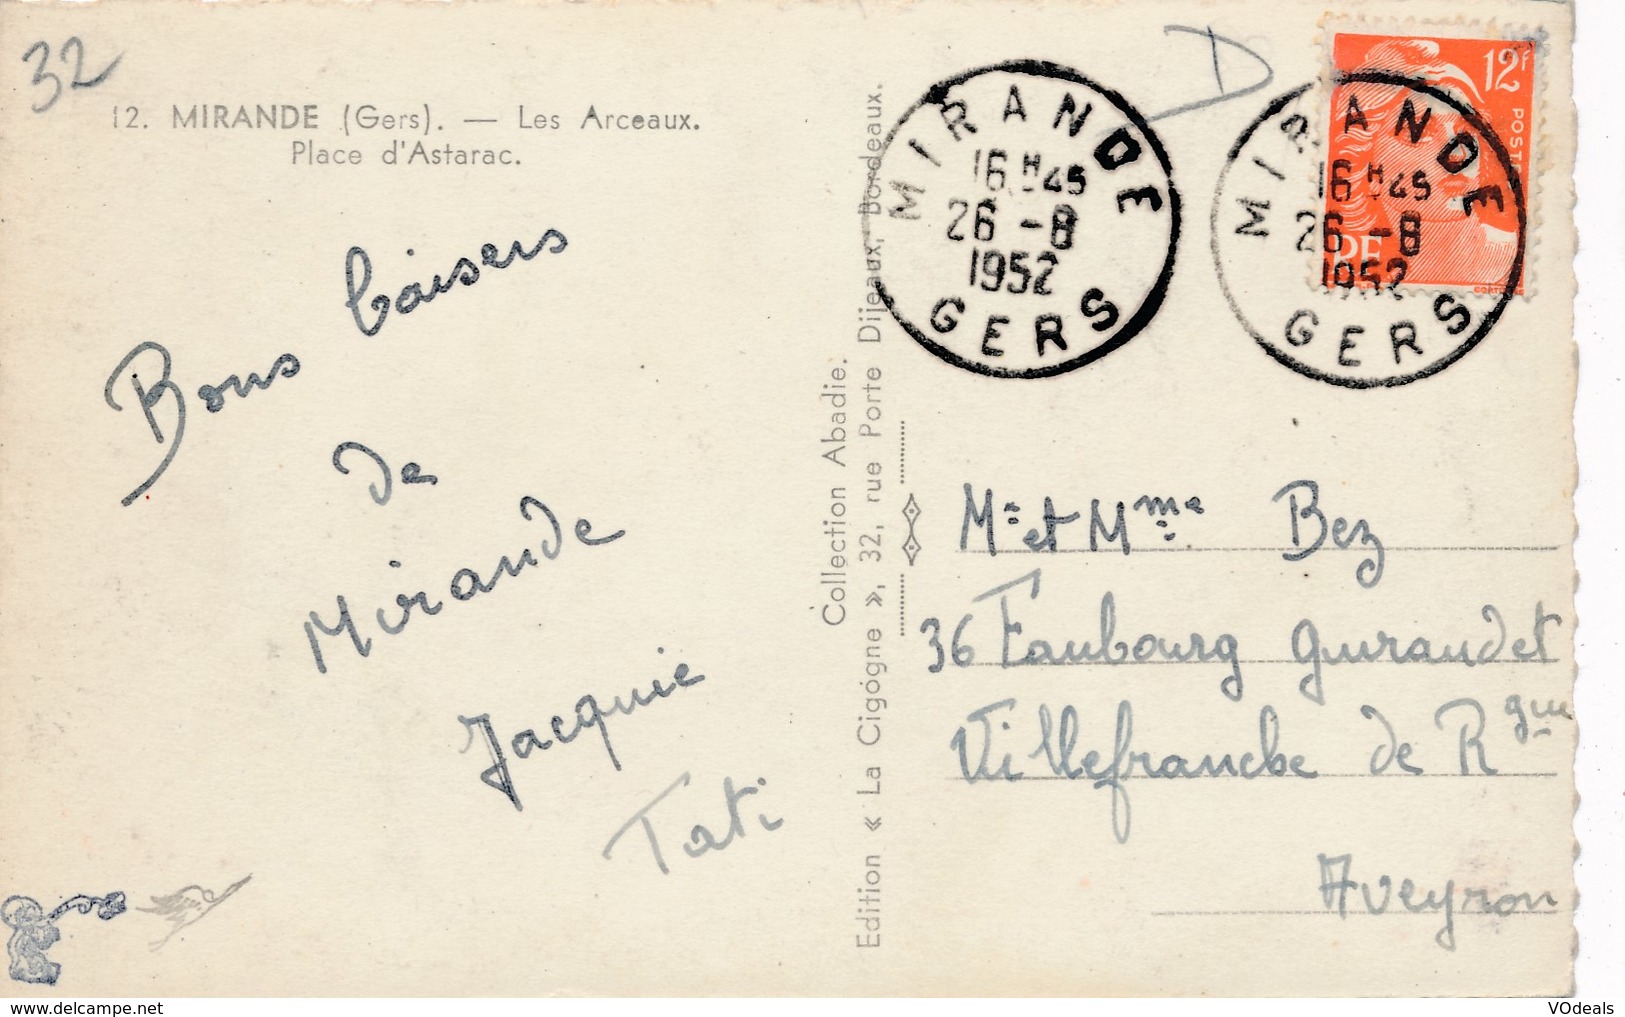 32
12. MIRANDE (Gers). — Les Arceaux.
Place d'Astarac.
Bons baisers
de
Mirande
Jacquie
Tati
Collection Abadie.
Edition « La Cigogne », 32, rue Porte Dijeaux, Bordeaux.
D
MIRANDE
16H45
26 -8
1952
GERS
MIRANDE
16H45
26 -8
1952
GERS
12f
POSTE
RF
Mr et Mme Bez
36 Faubourg Guiraudet
Villefranche de Rgue
Aveyron
VOdeals